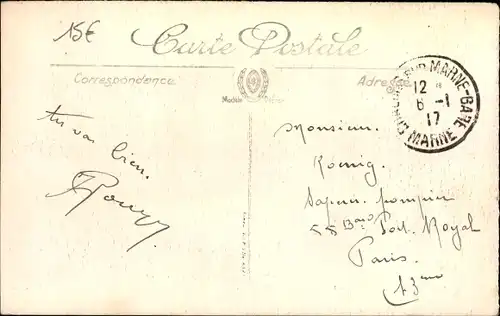 15€
Carte Postale
Correspondance
Adresse
CHALONS-SUR-MARNE-GARE
12
6-1
17
MARNE
tu vas bien.
Monsieur.
Koenig.
Sapeur-pompier
Bard Port Royal
Paris.
13eme